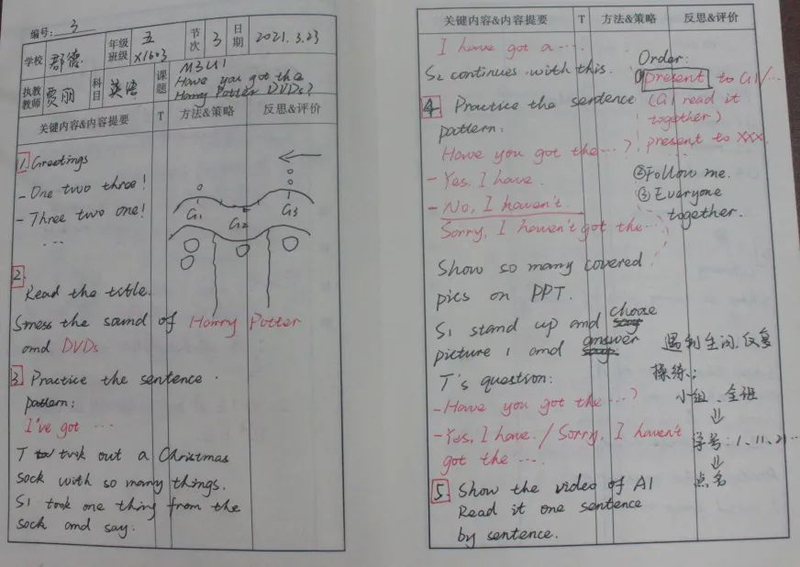 编号: 3
学校 群德 年级班级 五 X1603 节次 3 日期 2021.3.23
执教教师 贾丽 科目 英语 课题 M3U1 Have you got the Harry Potter DVDs?
关键内容&内容提要 T 方法&策略 反思&评价
1. Greetings
- One two three!
- Three two one!
...
G1 G2 G3
2.
Read the title.
Stress the sound of Harry Potter
and DVDs
3 Practice the sentence
pattern:
I've got ...
T took out a Christmas
sock with so many things.
S1 took one thing from the
sock and say:
关键内容&内容提要 T 方法&策略 反思&评价
I have got a ...
S2 continues with this.
4. Practice the sentence
pattern:
Have you got the ...?
- Yes, I have.
- No, I haven't.
Sorry, I haven't got the ...
Order:
① present to G1/...
(G1 read it
together)
present to XXX.
② Follow me.
③ Everyone
together.
Show so many covered
pics on PPT.
S1 stand up and choose
picture 1 and answer
T's question:
- Have you got the ...?
- Yes, I have. / Sorry, I haven't
got the ...
遇到生词,反复
操练:
小组、全班
⇓
学号:1、11、21...
⇓
点名
5. Show the video of A1
Read it one sentence
by sentence.